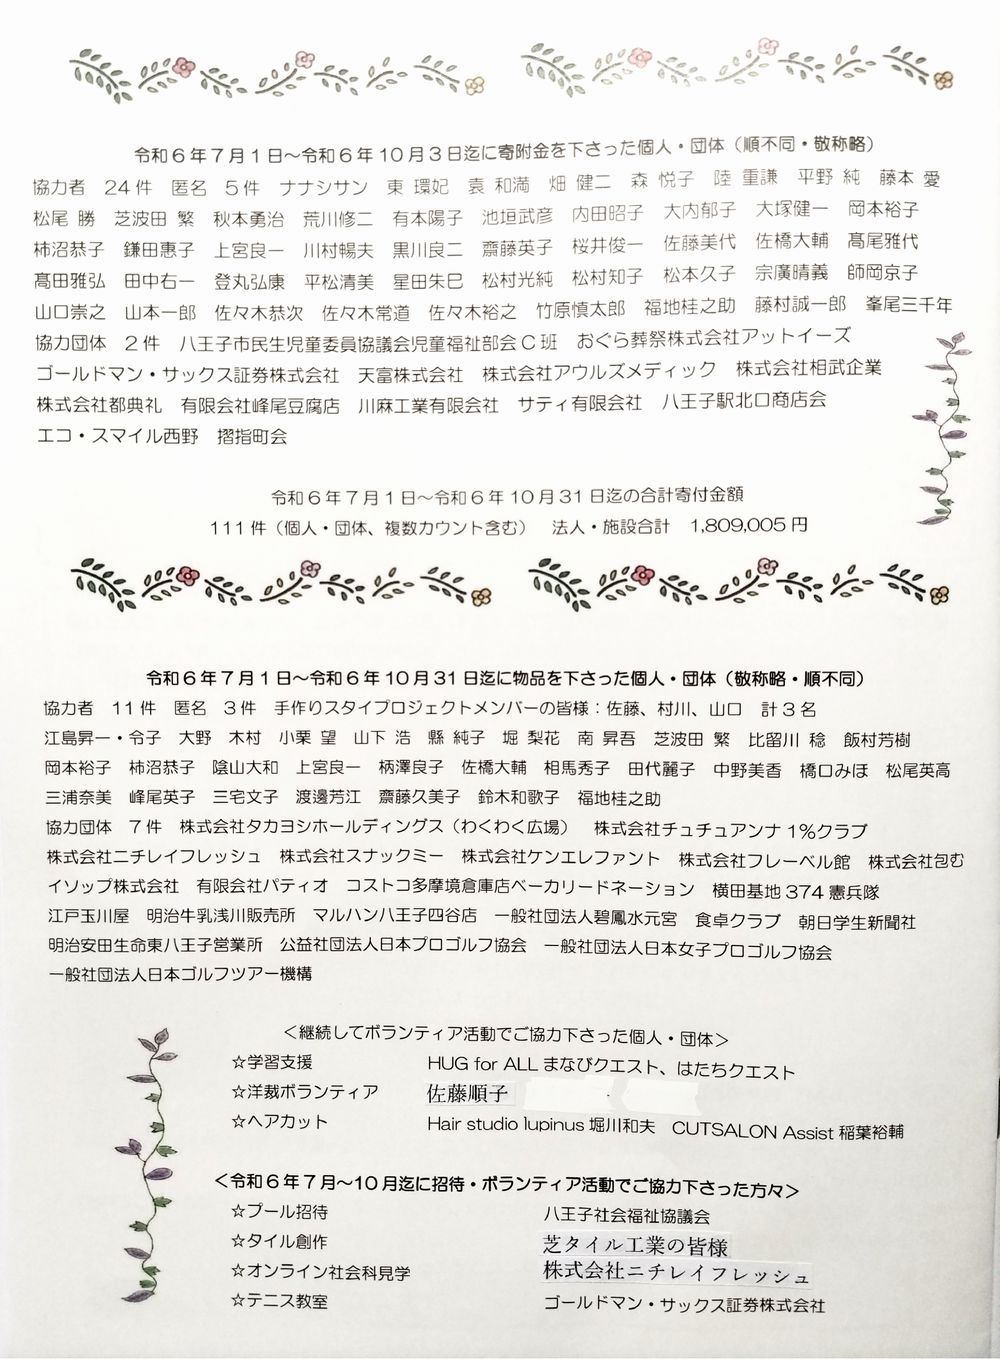 令和６年７月１日～令和６年１０月３日迄に寄附金を下さった個人・団体（順不同・敬称略）
協力者　24件　匿名　5件　ナナシサン　東 環妃　袁 和満　畑 健二　森 悦子　陸 重謙　平野 純　藤本 愛
松尾 勝　芝波田 繁　秋本勇治　荒川修二　有本陽子　池垣武彦　内田昭子　大内郁子　大塚健一　岡本裕子
柿沼恭子　鎌田惠子　上宮良一　川村暢夫　黒川良二　齋藤英子　桜井俊一　佐藤美代　佐橋大輔　髙尾雅代
髙田雅弘　田中右一　登丸弘康　平松清美　星田朱巳　松村光純　松村知子　松本久子　宗廣晴義　師岡京子
山口崇之　山本一郎　佐々木恭次　佐々木常道　佐々木裕之　竹原慎太郎　福地桂之助　藤村誠一郎　峯尾三千年
協力団体　2件　八王子市民生児童委員協議会児童福祉部会Ｃ班　おぐら葬祭株式会社アットイーズ
ゴールドマン・サックス証券株式会社　天富株式会社　株式会社アウルズメディック　株式会社相武企業
株式会社都典礼　有限会社峰尾豆腐店　川麻工業有限会社　サティ有限会社　八王子駅北口商店会
エコ・スマイル西野　摺指町会
令和６年７月１日～令和６年１０月３１日迄の合計寄付金額
111件（個人・団体、複数カウント含む）　法人・施設合計　1,809,005円
令和６年７月１日～令和６年１０月３１日迄に物品を下さった個人・団体（敬称略・順不同）
協力者　11件　匿名　3件　手作りスタイプロジェクトメンバーの皆様：佐藤、村川、山口　計３名
江島昇一・令子　大野　木村　小栗 望　山下 浩　縣 純子　堀 梨花　南 昇吾　芝波田 繁　比留川 稔　飯村芳樹
岡本裕子　柿沼恭子　陰山大和　上宮良一　柄澤良子　佐橋大輔　相馬秀子　田代麗子　中野美香　橋口みほ　松尾英高
三浦奈美　峰尾英子　三宅文子　渡邊芳江　齋藤久美子　鈴木和歌子　福地桂之助
協力団体　7件　株式会社タカヨシホールディングス（わくわく広場）　株式会社チュチュアンナ1%クラブ
株式会社ニチレイフレッシュ　株式会社スナックミー　株式会社ケンエレファント　株式会社フレーベル館　株式会社包む
イソップ株式会社　有限会社パティオ　コストコ多摩境倉庫店ベーカリードネーション　横田基地374憲兵隊
江戸玉川屋　明治牛乳浅川販売所　マルハン八王子四谷店　一般社団法人碧鳳水元宮　食卓クラブ　朝日学生新聞社
明治安田生命東八王子営業所　公益社団法人日本プロゴルフ協会　一般社団法人日本女子プロゴルフ協会
一般社団法人日本ゴルフツアー機構
＜継続してボランティア活動でご協力下さった個人・団体＞
☆学習支援　HUG for ALLまなびクエスト、はたちクエスト
☆洋裁ボランティア　佐藤順子
☆ヘアカット　Hair studio lupinus堀川和夫　CUTSALON Assist稲葉裕輔
＜令和６年７月～10月迄に招待・ボランティア活動でご協力下さった方々＞
☆プール招待　八王子社会福祉協議会
☆タイル創作　芝タイル工業の皆様
☆オンライン社会科見学　株式会社ニチレイフレッシュ
☆テニス教室　ゴールドマン・サックス証券株式会社